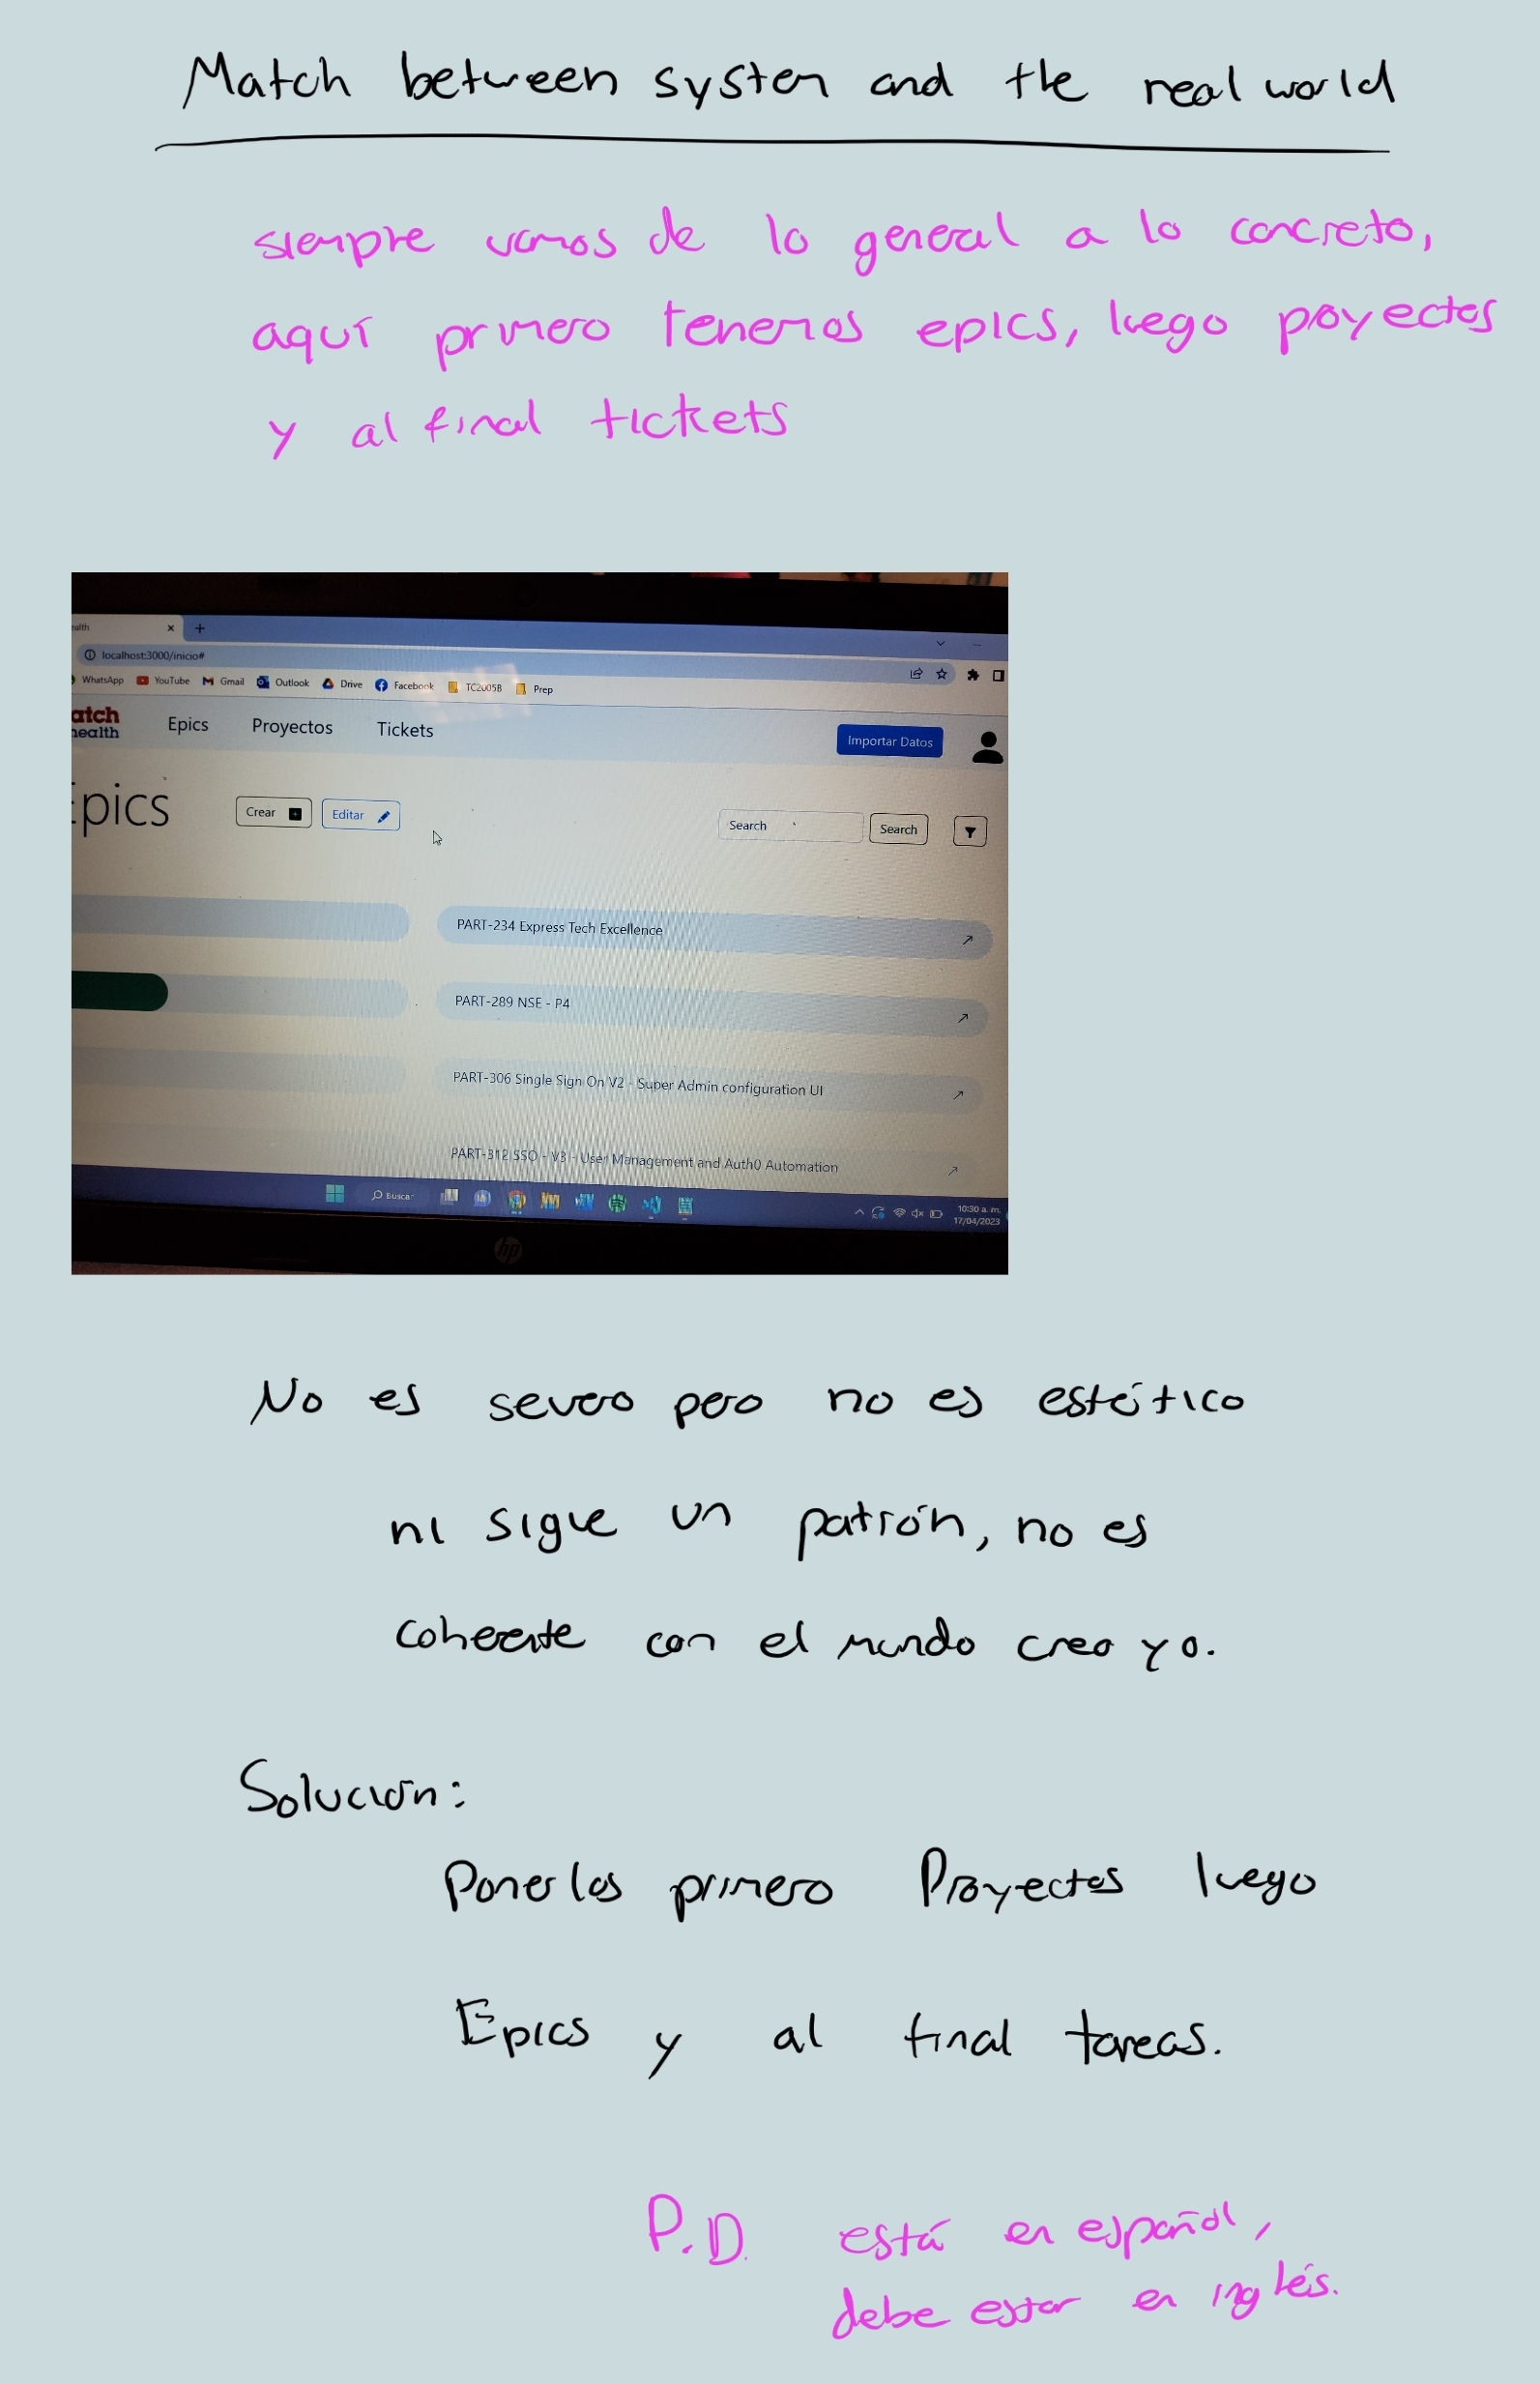 Match between system and the real world
siempre vamos de lo general a lo concreto,
aquí primero tenemos epics, luego proyectos
y al final tickets
ealth × +
localhost:3000/inicio#
WhatsApp YouTube Gmail Outlook Drive Facebook TC2005B Prep
atch
health
Epics Proyectos Tickets Importar Datos
Epics Crear Editar Search Search
PART-234 Express Tech Excellence
PART-289 NSE - P4
PART-306 Single Sign On V2 - Super Admin configuration UI
PART-312 SSO - V3 - User Management and Auth0 Automation
Buscar 10:30 a. m.
17/04/2023
hp
No es severo pero no es estético
ni sigue un patrón, no es
coherente con el mundo creo yo.
Solución:
Ponerlos primero Proyectos luego
Epics y al final tareas.
P.D. está en español,
debe estar en inglés.